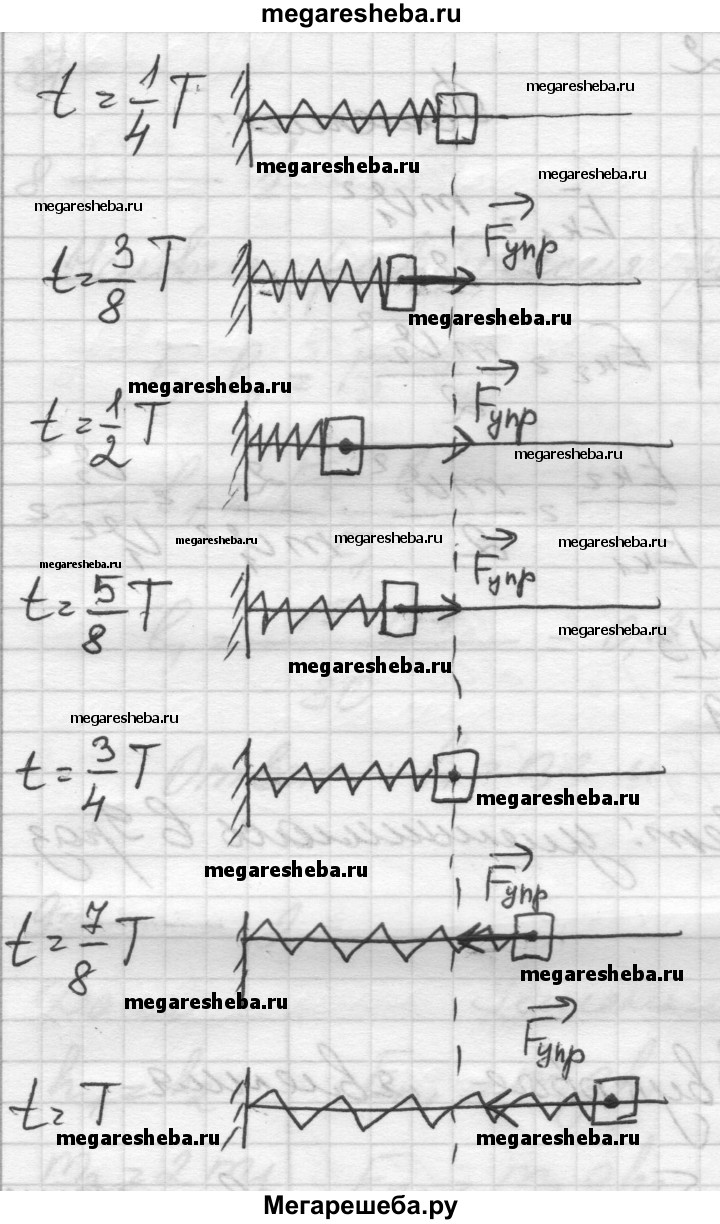 megaresheba.ru
t = 1/4 T
megaresheba.ru
megaresheba.ru
megaresheba.ru
megaresheba.ru
Fупр
t = 3/8 T
megaresheba.ru
megaresheba.ru
Fупр
t = 1/2 T
megaresheba.ru
megaresheba.ru
megaresheba.ru
megaresheba.ru
megaresheba.ru
Fупр
t = 5/8 T
megaresheba.ru
megaresheba.ru
megaresheba.ru
t = 3/4 T
megaresheba.ru
megaresheba.ru
Fупр
t = 7/8 T
megaresheba.ru
megaresheba.ru
Fупр
t = T
megaresheba.ru
megaresheba.ru
Мегарешеба.ру